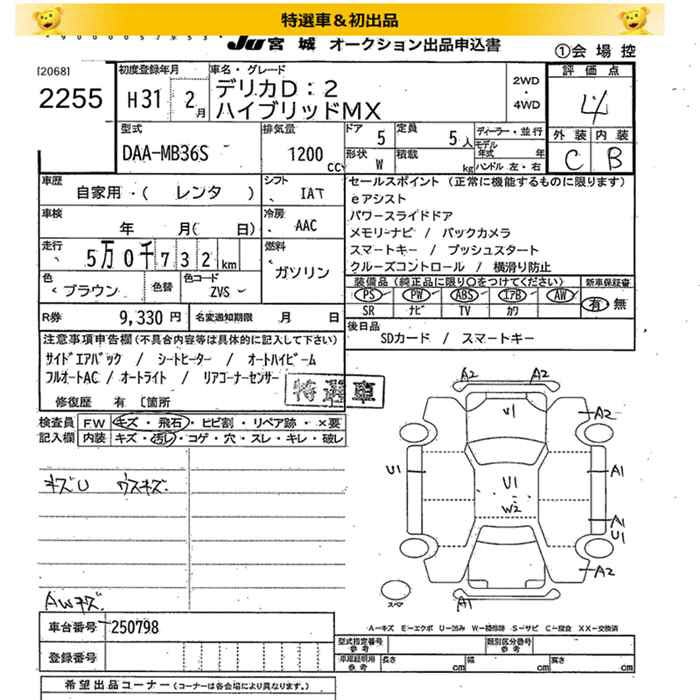 特選車＆初出品
JU 宮城 オークション出品申込書
①会場控
[2068]
2255
初度登録年月
H31 2月
車名・グレード
デリカD：2
ハイブリッドMX
2WD
・
4WD
評価点
4
外装 内装
C B
型式
DAA-MB36S
排気量
1200 cc
ドア 5
定員 5人
形状 W
積載 kg
ディーラー・並行
モデル年式 年
ハンドル 左・右
車歴
自家用・( レンタ )
シフト
IAT
車検
年 月( 日)
冷房
AAC
走行
5万0千732km
燃料
ガソリン
色
ブラウン
色替
色コード
ZVS
R券 9,330円
名変通知期限 月 日
セールスポイント (正常に機能するものに限ります)
eアシスト
パワースライドドア
メモリーナビ / バックカメラ
スマートキー / プッシュスタート
クルーズコントロール / 横滑り防止
装備品 (純正品に限り○をつけてください)
新車保証書
PS PW ABS エアB AW
SR ナビ TV カワ
有 無
後日品
SDカード / スマートキー
注意事項申告欄(不具合内容等は具体的に記入して下さい)
サイドエアバック / シートヒーター / オートハイビーム
フルオートAC / オートライト / リアコーナーセンサー
特選車
修復歴 有 [箇所
検査員
記入欄
FW キズ・飛石・ヒビ割・リペア跡・×要
内装 キズ・汚れ・コゲ・穴・スレ・キレ・破レ
キズU ウスキズ
AWキズ
A2 A2
U1
A2
U1
U1
W2
A1
A1
U1
A2
A1
スペア
A—キズ E—エクボ U—凹み W—補修跡 S—サビ C—腐食 XX—交換済
車台番号 250798
登録番号
型式指定番号
参考
類別区分番号
参考
車庫証明用
参考
長さ cm
幅 cm
高さ cm
希望出品コーナー (コーナーは各会場により異なります。)